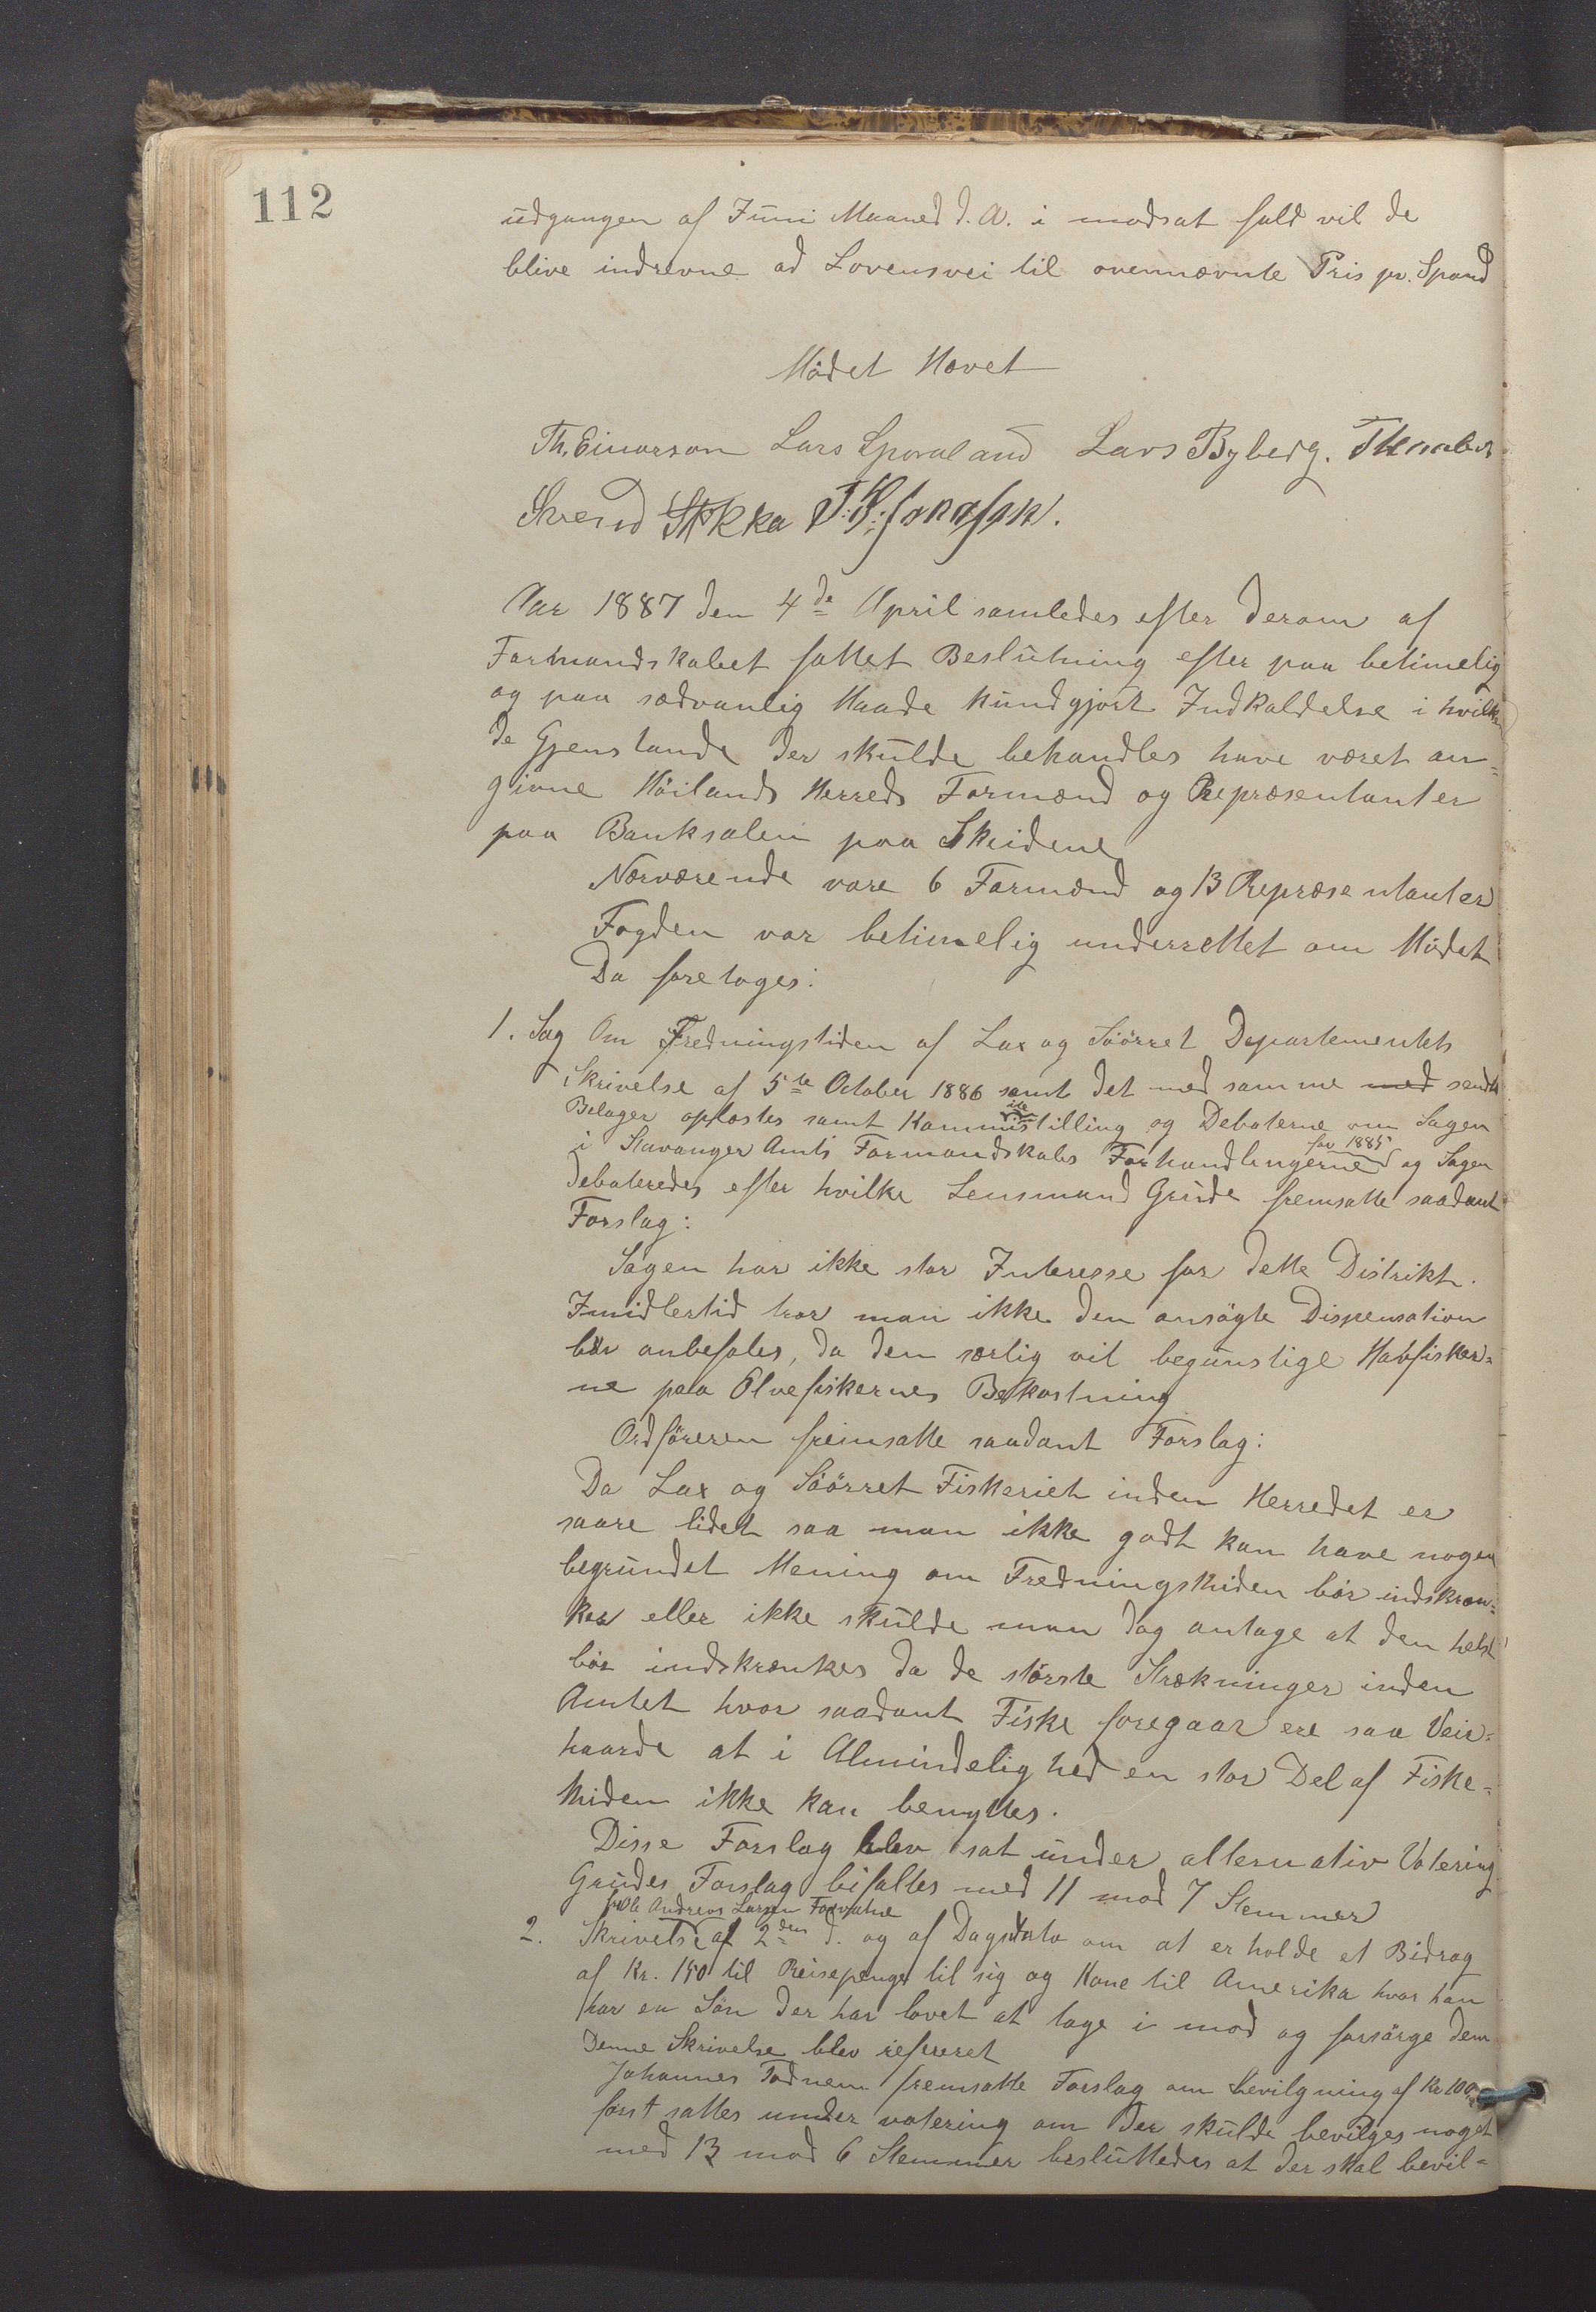 112
udgangen af Juni Maaned d. A. i modsat fald vil de
blive indrevne ad Lovensvei til ovennævnte Pris pr. Spand
Mødet Hævet
Th. Einarson Lars Sporaland Lars Byberg.
Svend Stokka T. S. Jonassen.
Aar 1887 den 4de April samledes efter derom af
Formandskabet fattet Beslutning efter paa betimelig
og paa sædvanlig Maade kundgjort Indkaldelse i hvilken
de Gjenstande der skulde behandles have været an=
givne Høilands Herreds Formænd og Repræsentanter
paa Banksalen paa Skeidene
Nærværende vare 6 Formænd og 13 Repræsentanter
Fogden var betimelig underrettet om Mødet
Da foretoges:
1. Sag Om Fredningstiden af Lax og Søørret Departementets
Skrivelse af 5te October 1886 samt det med samme med sendte
Belager oplæstes samt Kommiteistilling og Debaterne om Sagen
i Stavanger Amts Formandskabs Forhandlingerne for 1885 og Sagen
debateredes efter hvilke Lensmand Grude fremsatte saadant
Forslag:
Sagen har ikke stor Interesse for dette Distrikt.
Imidlertid tror man ikke den ansøgte Dispensation
bør anbefales, da den særlig vil begunstige Havfisker=
ne paa Elvefiskernes Bekostning
Ordføreren fremsatte saadant Forslag:
Da Lax og Søørret Fiskeriet inden Herredet er
saare lidet saa man ikke godt kan have nogen
begrundet Mening om Fredningsthiden bør indskræn=
kes eller ikke skulde man dog antage at den helst
bør indskrænkes da de største Strækninger inden
Amtet hvor saadant Fiske foregaar ere saa Veir=
haarde at i Almindelighed en stor Del af Fiske=
thiden ikke kan benyttes.
Disse Forslag blev sat under alternativ Votering
Grudes Forslag bifaltes med 11 mod 7 Stemmer
fra Ole Andreas Larsen Foxvatne
2. Skrivelse af 2den d. og af Dagsdato om at erholde et Bidrag
af Kr. 150 til Reisepenge til sig og Kone til Amerika hvor han
har en Søn der har lovet at tage i mod og forsørge dem
Denne Skrivelse blev refereret
Johannes Tødnem fremsatte Forslag om bevilgning af Kr 100
først sattes under votering om der skulde bevilges noget
med 13 mod 6 Stemmer besluttedes at der skal bevil=